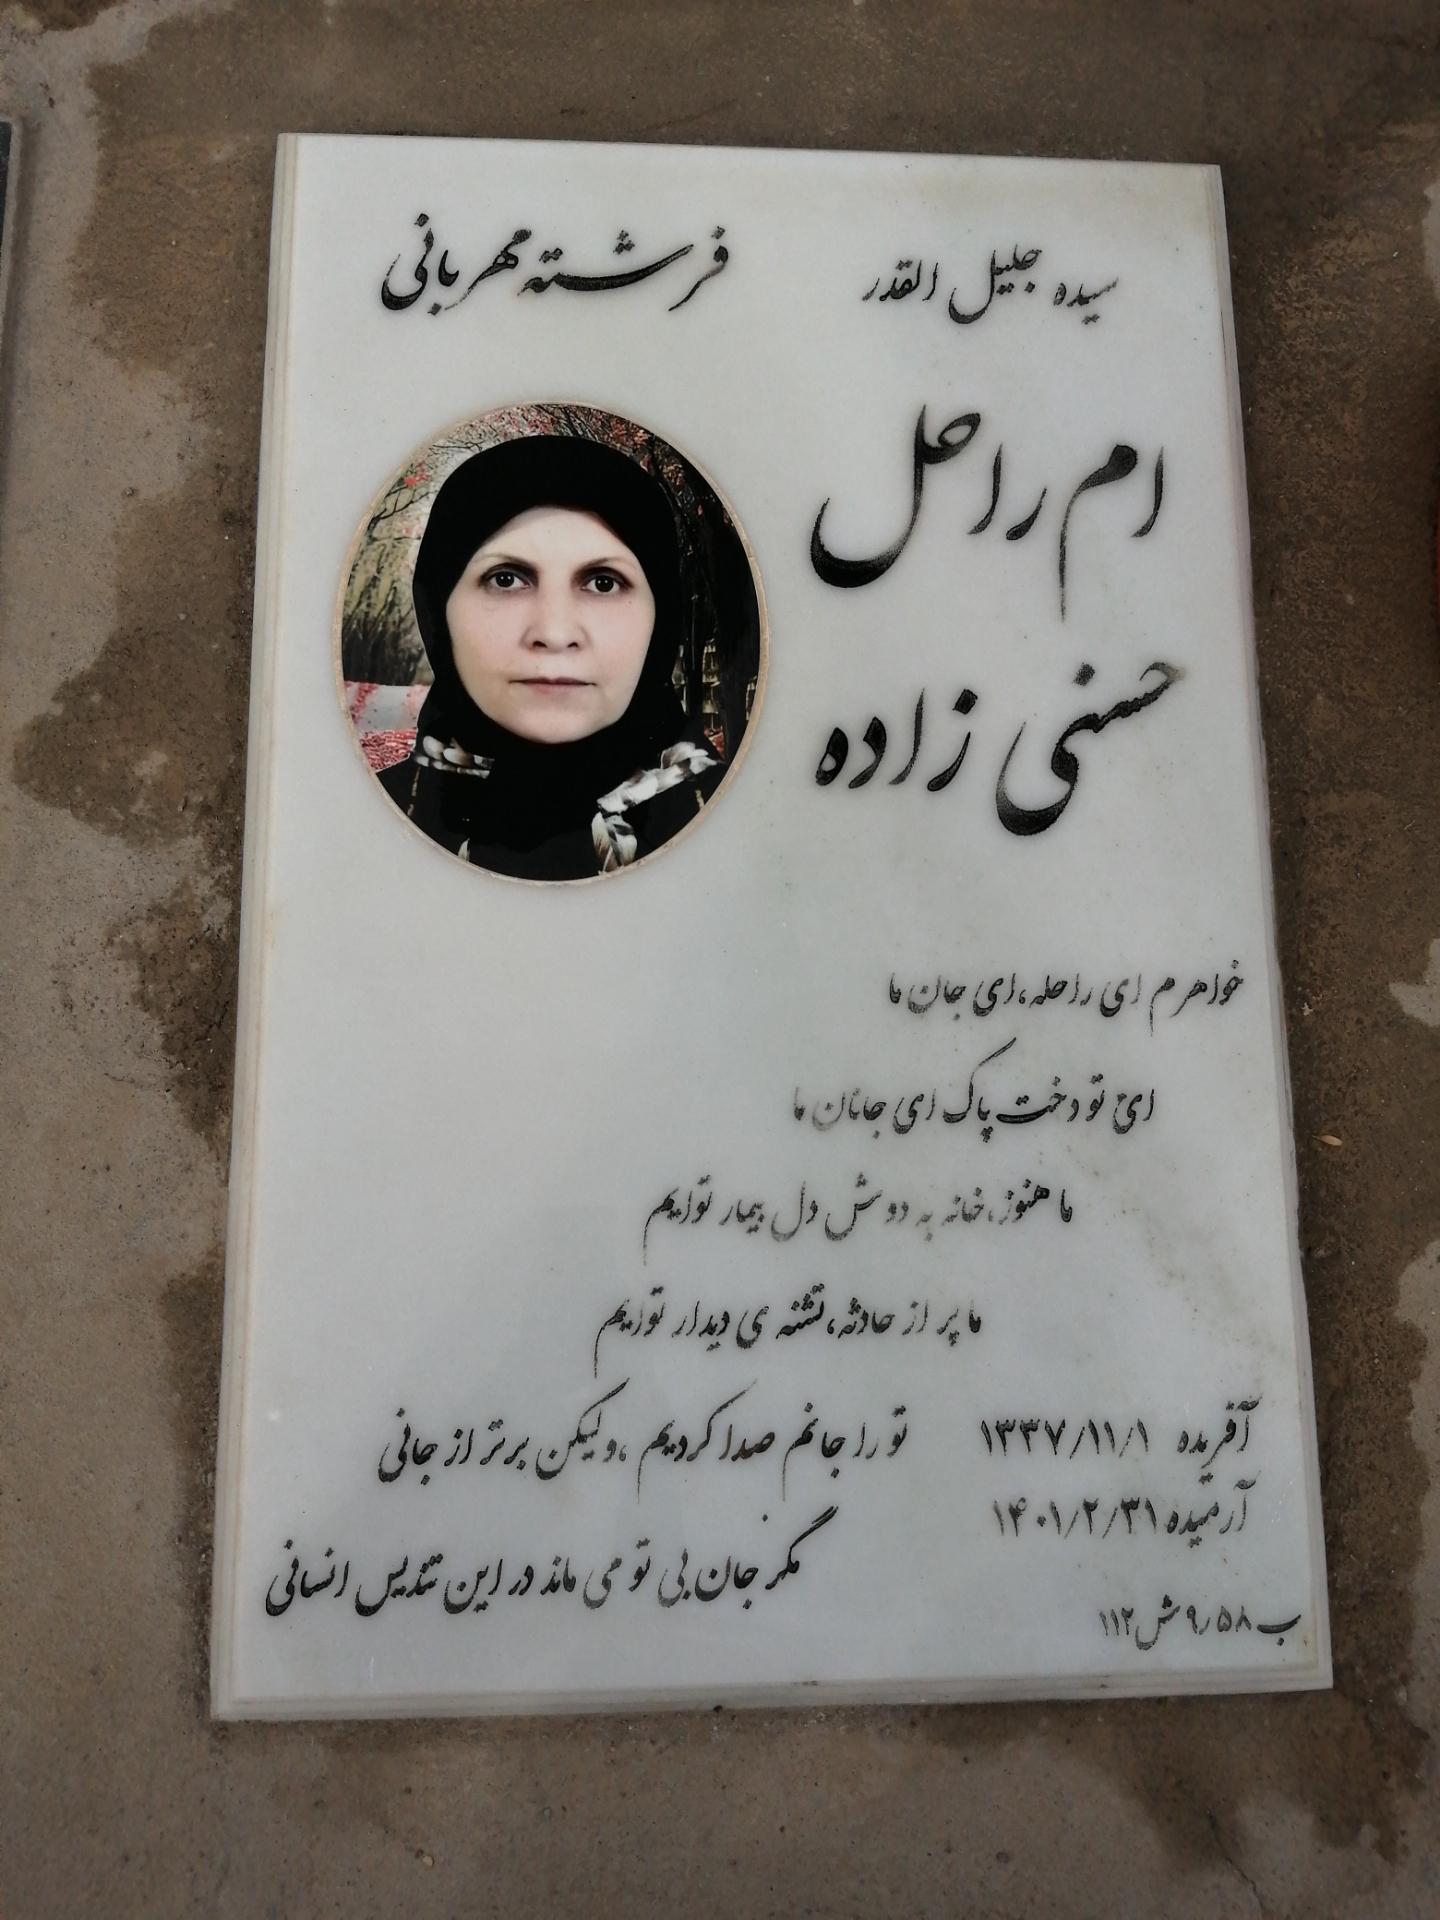 سیده جلیل القدر
فرشته مهربانی
ام راحل
حسنی زاده
خواهرم ای راحله،ای جان ما
ای تو دخت پاک ای جانان ما
ما هنوز،خانه به دوش دل بیمار توایم
ما پر از حادثه،تشنه ی دیدار توایم
آفریده ۱۳۳۷/۱۱/۱
تو را جانم صدا کردیم ،ولیکن برتر از جانی
آرمیده ۱۴۰۱/۲/۳۱
مگر جان بی تو می ماند در این تندیس انسانی
ب ۵۸ ر۹ ش ۱۱۲